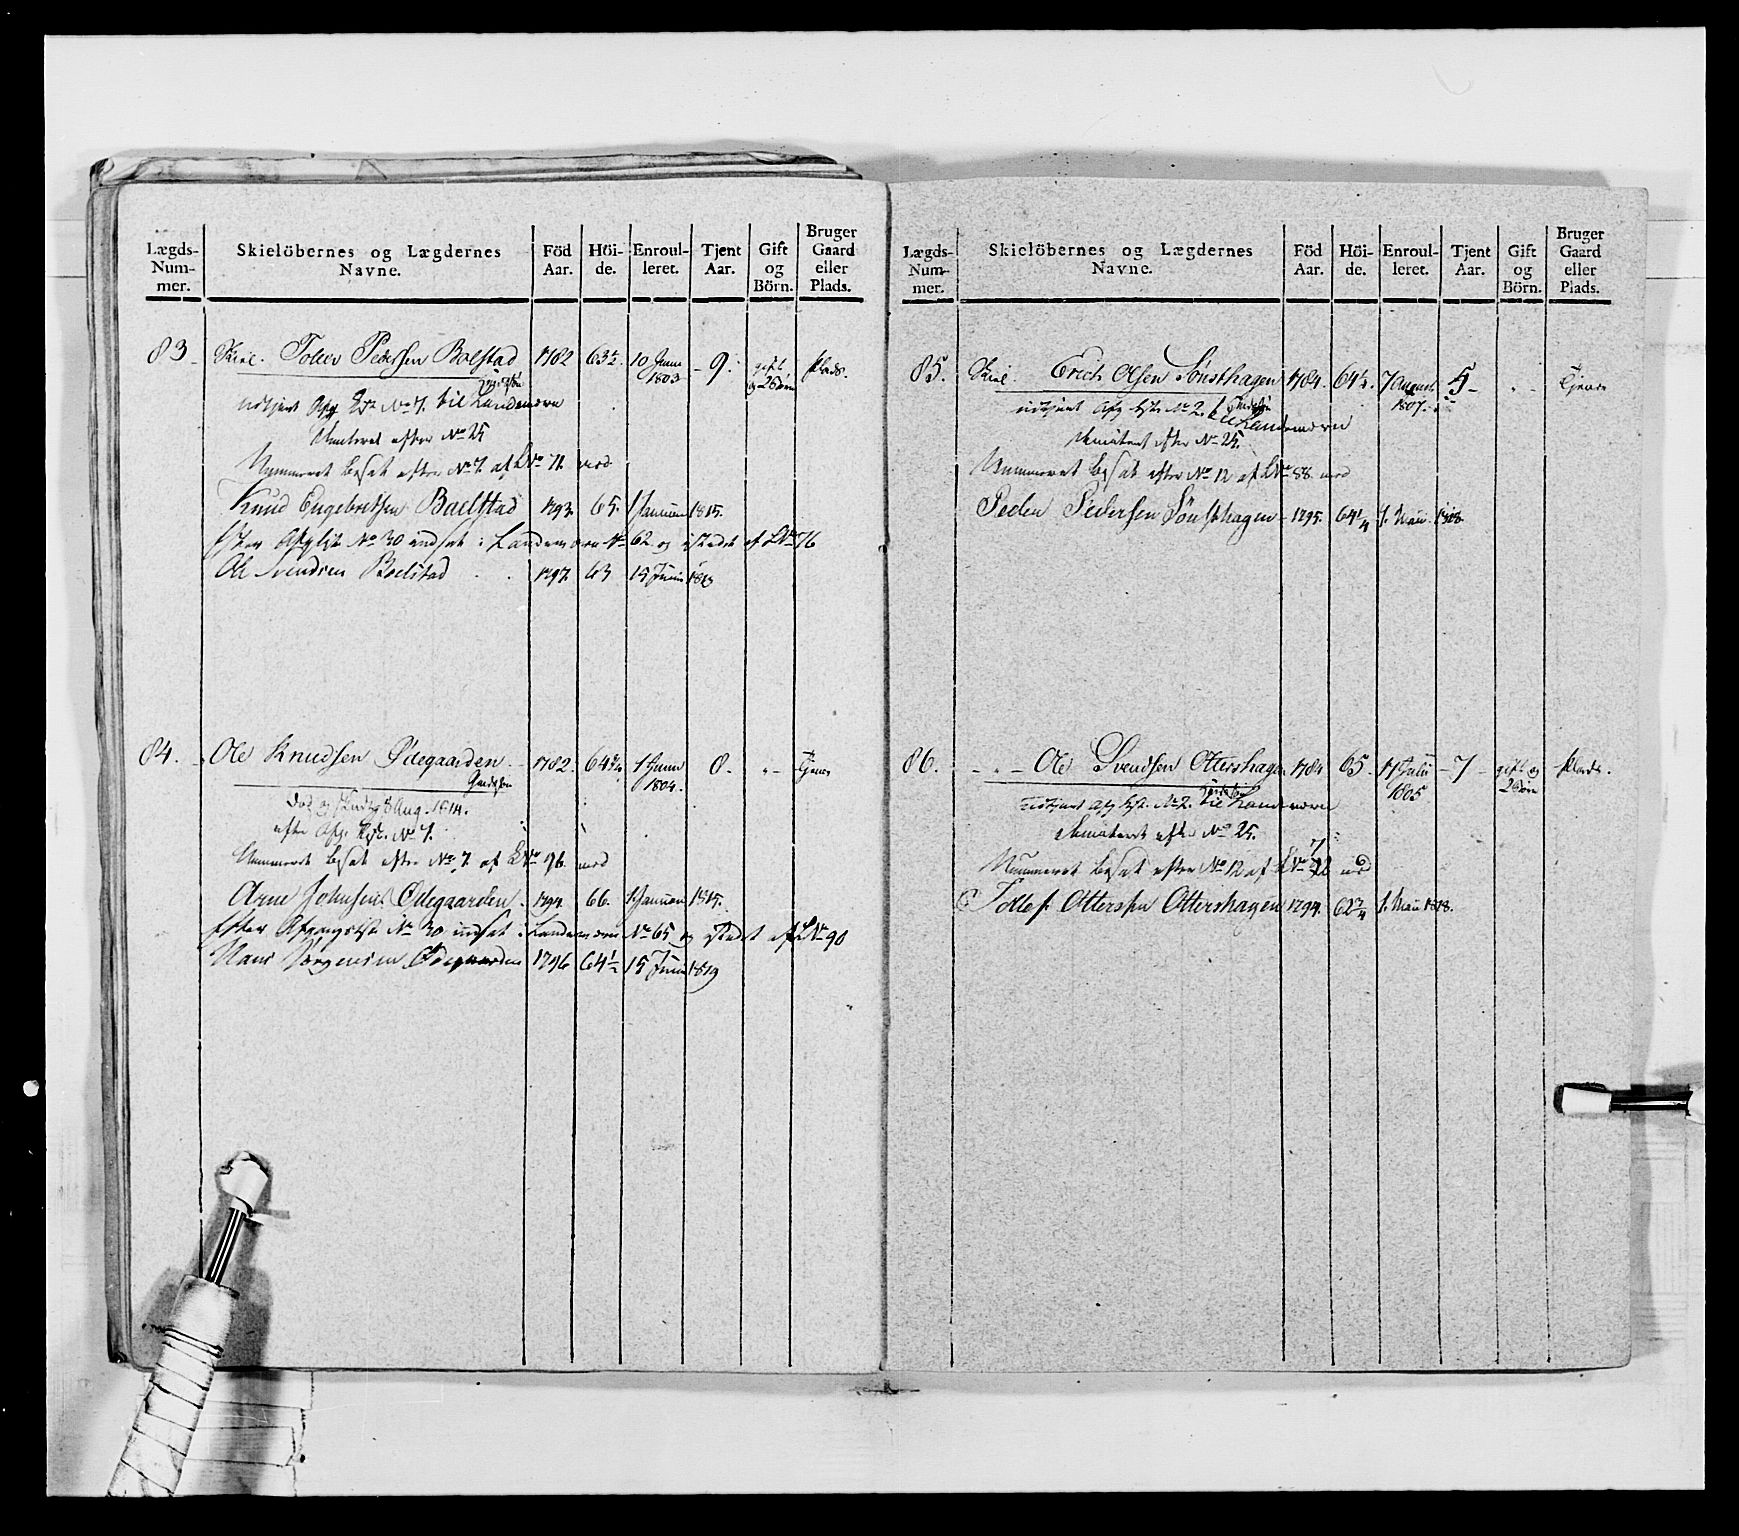 Lægds-Num-mer. Skielöbernes og Lægdernes Navne. Föd Aar. Höi-de. Enroul-leret. Tjent Aar. Gift og Börn. Bruger Gaard eller Plads.
83 Skiel. Pedersen Bolstad 1782 63½ 10 Juni 1803 9. gift og 2 Börn Plads.
udtjent Afg No 7. til Landeværn
efter No 25
Nummeret besat efter No 7. af LNo 71. med
Knud Engebretsen Baelstad 1793. 65. 1 Januar 1815.
Efter Afgl. No 30 indsat i Landeværn No 62 og istedet af LNo 76
Ole Svendsen Boelstad 1797. 63 15 Juni
84. Ole Knudsen Ødegaarden 1782. 1 Juni 1804. 8. Tjener
Død og Aug. 1814.
efter Afg. No 7.
Nummeret besat efter No 7. af LNo 96. med
Arne Johnsen Ødegaarden 1794. 66. 1 Januar 1815.
Efter Afgangsl. No 30 indsat i Landeværn No 65 og istedet af LNo 90
Hans Jörgensen Ødegaarden 1796 64½ 15 Juni 1819
Lægds-Num-mer. Skielöbernes og Lægdernes Navne. Föd Aar. Höi-de. Enroul-leret. Tjent Aar. Gift og Börn. Bruger Gaard eller Plads.
85. Skiel. Erich Olsen Sönsthagen 1784. 7 August 1807. 5 Tjener
udtjent Afg No 2. til Landeværn
efter No 25.
Nummeret besat efter No 12 af LNo 88 med
Peder Pedersen Sönsthagen 1795. 64¼ 1. Mai 1818.
86. Ole Svendsen Ottershagen 1784 65. 1 Julii 1805 7 gift og 2 Börn Plads.
udtjent Afg No 2. til Landeværn
efter No 25.
Nummeret besat efter No 12 af LNo 72 med
Ottersen Ottershagen 1794. 1. Mai 1818.